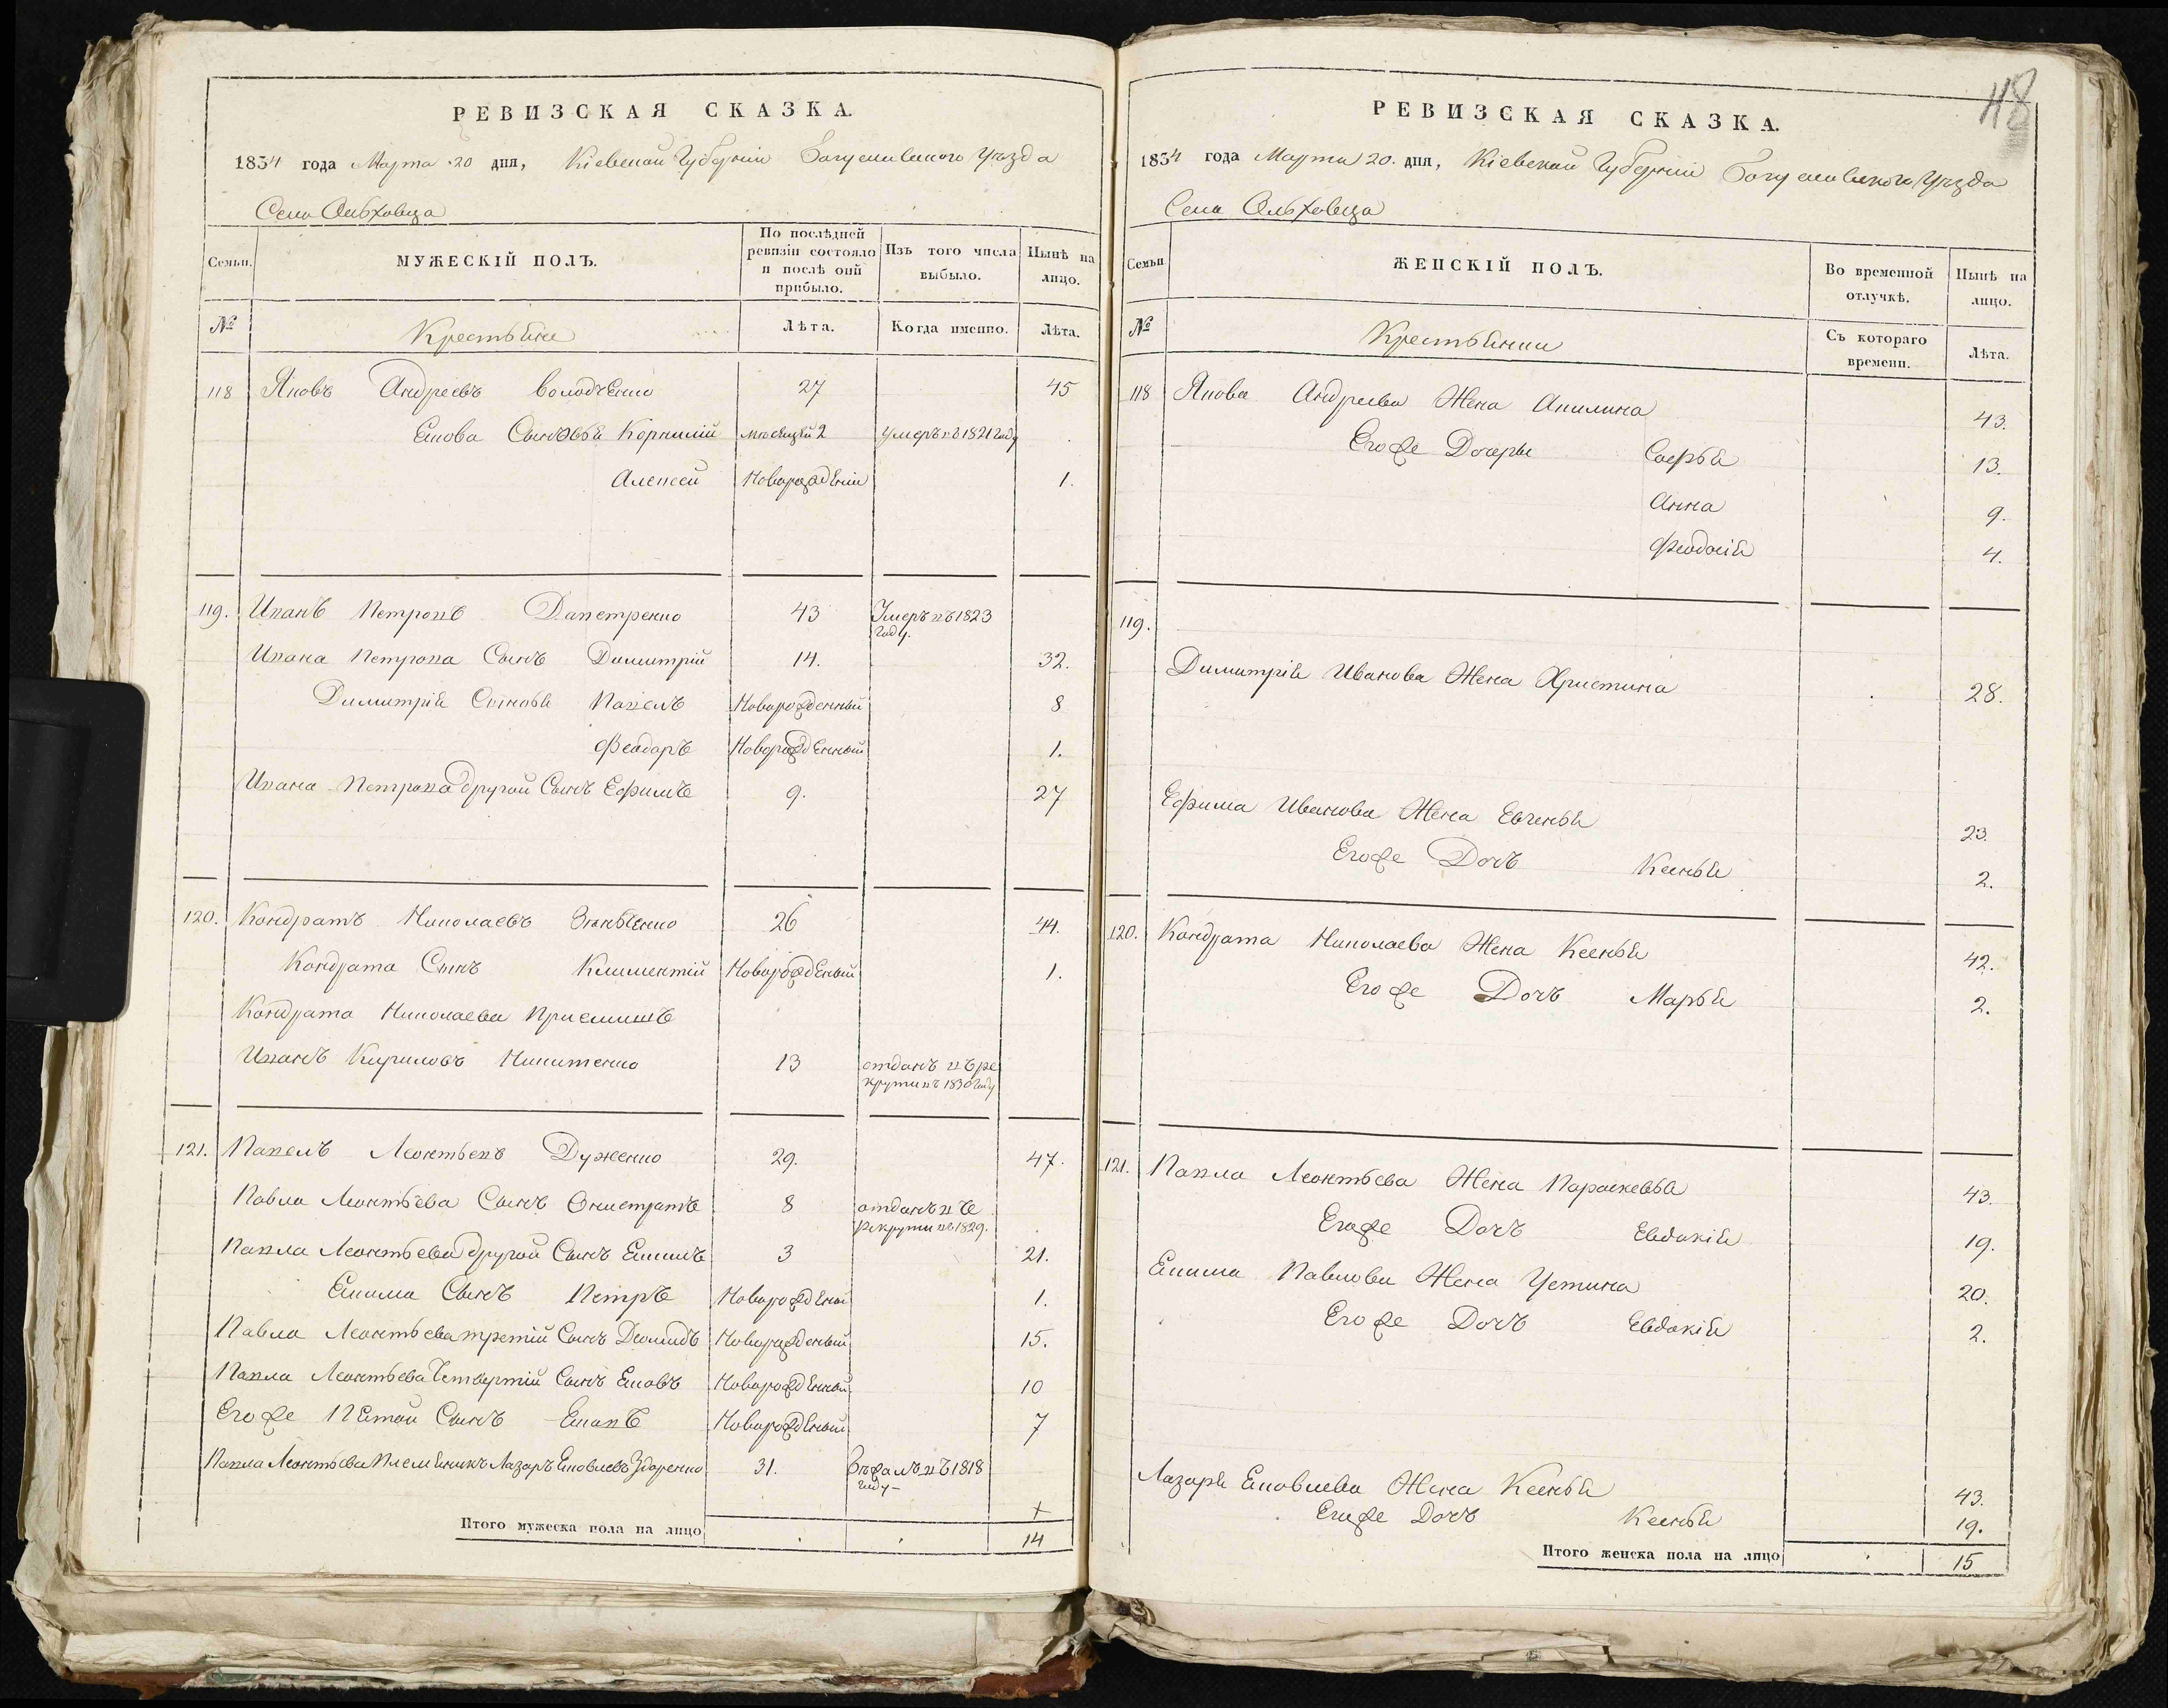 РЕВИЗСКАЯ СКАЗКА.
1834 года Марта 20 дня, Кіевской Губерніи Богуславскаго Уѣзда
Села Ольховца
Семьи.
МУЖЕСКІЙ ПОЛЪ.
По послѣдней ревизіи состояло и послѣ оній прибыло.
Изъ того числа выбыло.
Нынѣ на лицо.
№
Крестьяне
Лѣта.
Когда именно.
Лѣта.
118 Яковъ Андреевъ Володченко 27 45
Якова Сыновья Корнилій мѣсяцей 2 Умеръ въ 1821 году
Алексей Новорожденій 1.
119. Иванъ Петровъ Дапетренко 43 Умеръ въ 1823
году.
Ивана Петрова Сынъ Димитрій 14. 32.
Димитрія Сыновья Павелъ Новорожденный 8
Феодоръ Новорожденный 1.
Ивана Петрова другой Сынъ Ефимъ 9. 27
120. Кондратъ Николаевъ 26 44.
Кондрата Сынъ Климентій Новорожденый 1.
Кондрата Николаева Приемышъ
Иванъ Кириловъ Никитенко 13 отданъ въ ре
крути въ 1830 году
121. Павелъ Леонтьевъ Дуженко 29. 47.
Павла Леонтьева Сынъ Онистратъ 8 отданъ въ
рекрути въ 1829.
Павла Леонтьева другой Сынъ Якимъ 3 21.
Якима Сынъ Петръ Новорожденый 1.
Павла Леонтьева третій Сынъ Деомидъ Новорожденый 15.
Павла Леонтьева Четвертій Сынъ Яковъ Новорожденый 10
Его же Пятой Сынъ Новорожденый 7
Павла Леонтьева Племяникъ Лазарь Яковлевъ Здоренко 31. Бѣжалъ въ 1818
году –
+
Итого мужеска пола на лицо 14
48
РЕВИЗСКАЯ СКАЗКА.
1834 года Марта 20. дня, Кіевской Губерніи Богуславскаго Уѣзда
Села Ольховца
Семьи
ЖЕНСКІЙ ПОЛЪ.
Во временной отлучкѣ.
Нынѣ на лицо.
№
Крестьянки
Съ котораго времени.
Лѣта.
118 Якова Андреева Жена Акилина 43.
Его же Дочеры Софья 13.
Анна 9.
Феодосія 4.
119.
Димитрія Иванова Жена Христина 28.
Ефима Иванова Жена Евгенья 23.
Его же Дочъ Ксенья 2.
120. Кондрата Николаева Жена Ксенья 42.
Его же Дочъ Марья 2.
121. Павла Леонтьева Жена Параскевья 43.
Его же Дочъ Евдокія 19.
Якима Павлова Жена Устина 20.
Его же Дочъ Евдокія 2.
Лазаря Яковлева Жена Ксенья 43.
Его же Дочъ Ксенья 19.
Итого женска пола на лицо 15